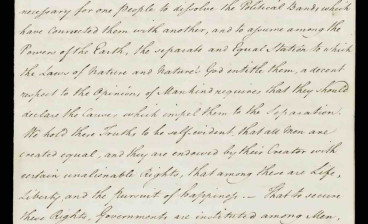 necessary for one People to dissolve the Political Bands which
have connected them with another, and to assume among the
Powers of the Earth, the separate and Equal Station to which
the Laws of Nature and Nature's God entitle them, a decent
respect to the Opinions of Mankind requires that they should
declare the causes which impel them to the Separation.
We hold these Truths to be self-evident, that all Men are
created equal, and they are endowed by their Creator with
certain unalienable Rights, that among these are Life,
Liberty, and the Pursuit of happiness. — That to secure
these Rights, Governments are instituted among Men,